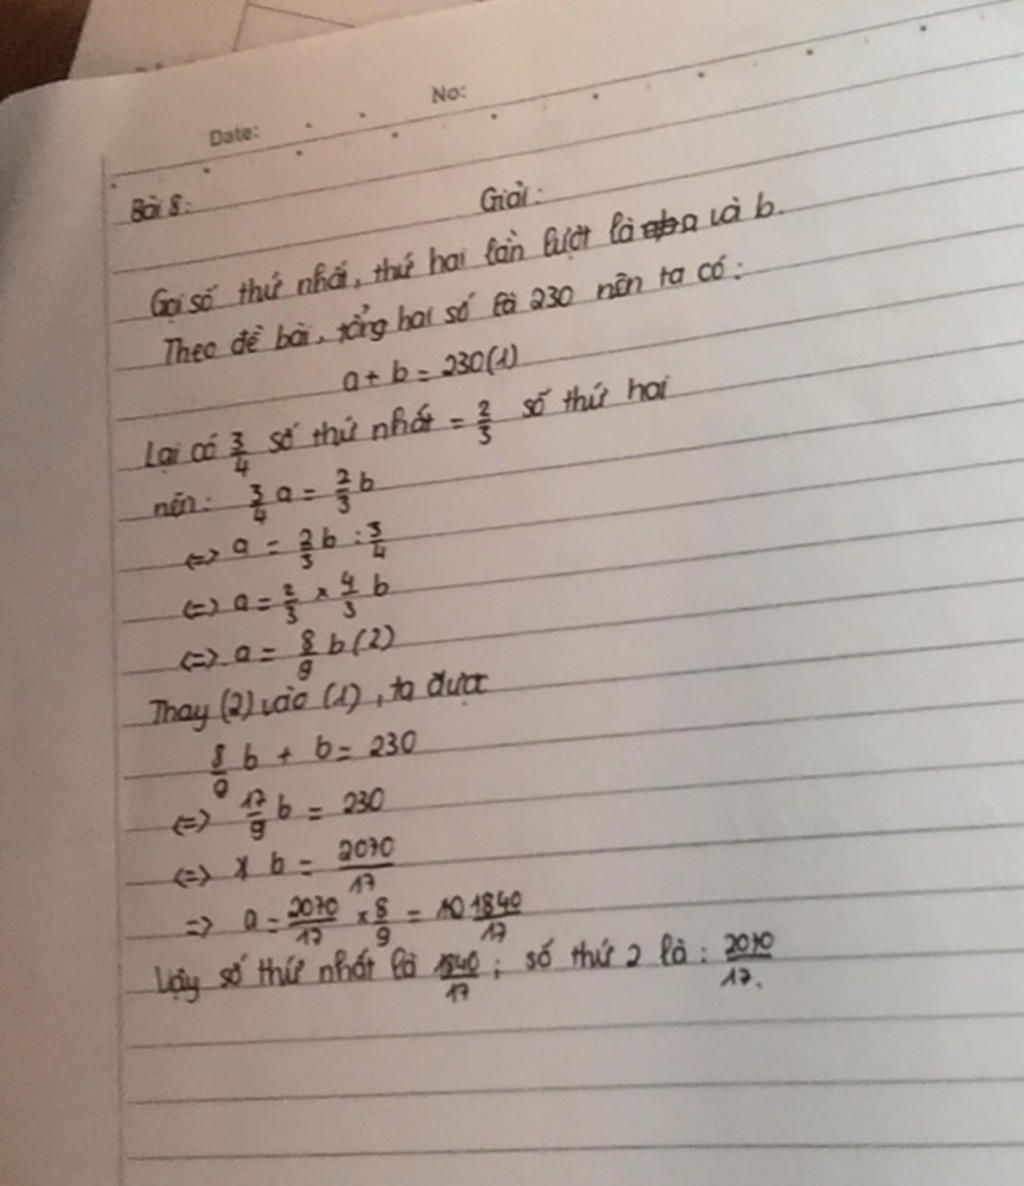 Date:
No:
Bài 8:
Giải:
Gọi số thứ nhất, thứ hai lần lượt là a và b.
Theo đề bài, tổng hai số là 230 nên ta có:
a + b = 230 (1)
Lại có 3/4 số thứ nhất = 2/3 số thứ hai
nên: 3/4 a = 2/3 b
<=> a = 2/3 b : 3/4
<=> a = 2/3 × 4/3 b
<=> a = 8/9 b (2)
Thay (2) vào (1), ta được
8/9 b + b = 230
<=> 17/9 b = 230
<=> b = 2070/17
=> a = 2070/17 × 8/9 = 1840/17
Vậy số thứ nhất là 1840/17; số thứ 2 là: 2070/17.